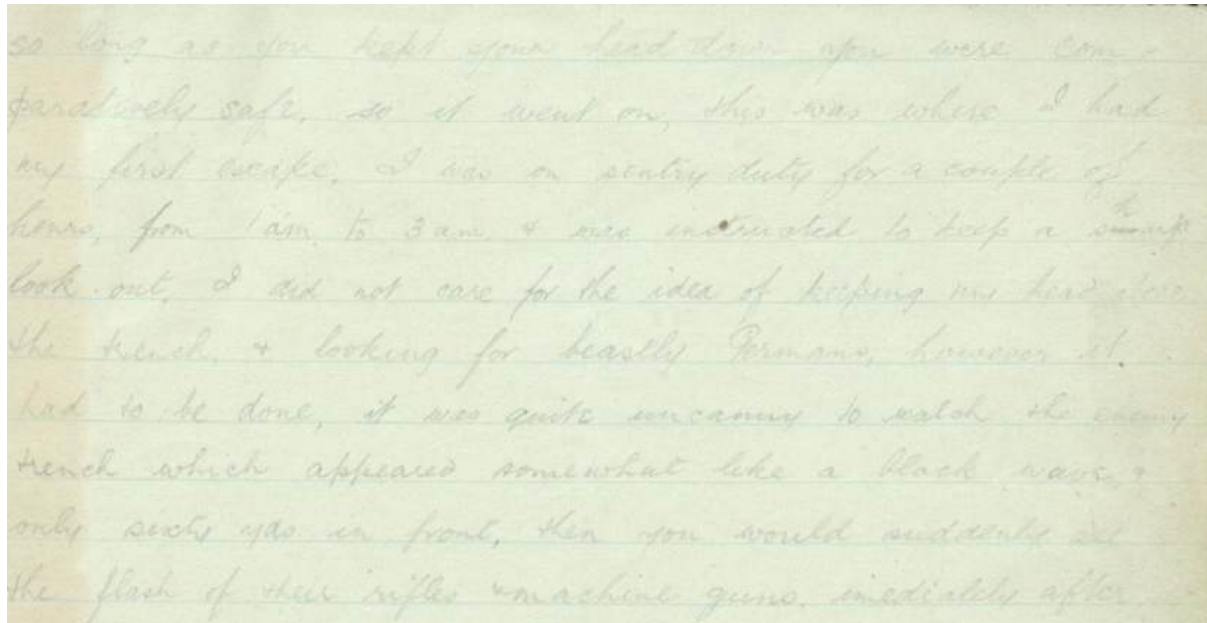 so long as you kept your head down you were com-
paratively safe, so it went on, this was where I had
my first escape, I was on sentry duty for a couple of
hours, from 1 am, to 3 am, & was instructed to keep a sharp
look out, I did not care for the idea of keeping my head above
the trench, & looking for beastly Germans, however it
had to be done, it was quite uncanny to watch the enemy
trench which appeared somewhat like a black wave, &
only sixty yds in front, then you would suddenly see
the flash of their rifles & machine guns, imediatly after